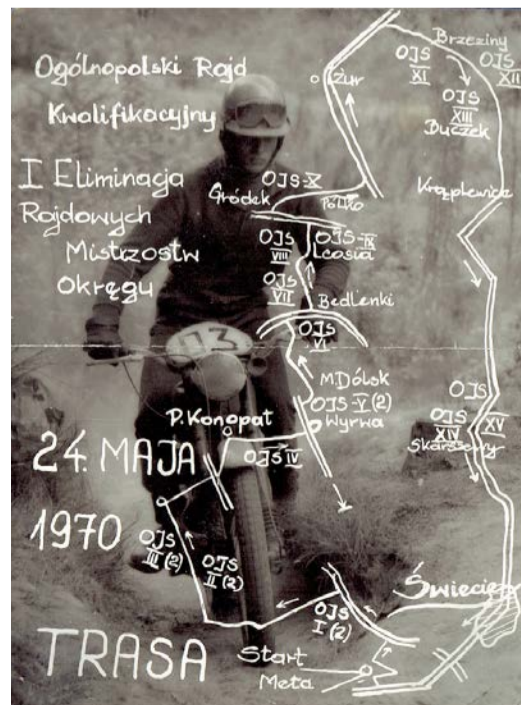 Ogólnopolski Rajd
Kwalifikacyjny
I Eliminacja
Rajdowych
Mistrzostw
Okręgu
24. MAJA
1970
TRASA
Brzeziny
OJS XI
OJS XII
OJS XIII
Buczek
Żur
Krąplewice
OJS-X
Gródek
OJS VIII
OJS-IX
Leosia
OJS VII
Bedlenki
OJS VI
M.Dólsk
OJS-V(2)
Wyrwa
P.Konopat
OJS IV
OJS
XIV
XV
Skarszewy
OJS III (2)
OJS II (2)
OJS I (2)
Świecie
Start
Meta
13